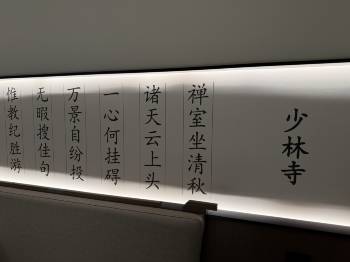 少林寺
禅室坐清秋
诸天云上头
一心何挂碍
万景自纷投
无暇搜佳句
惟教纪胜游